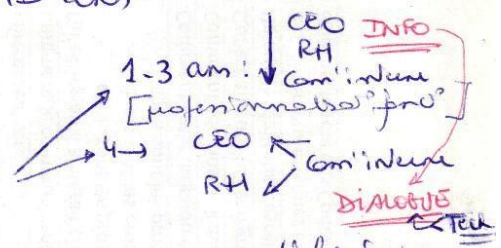 CEO INFO
RH
1-3 ans : Com° interne
[professionnalisa° fonc°]
4→ CEO
Com° interne
RH
DIALOGUE